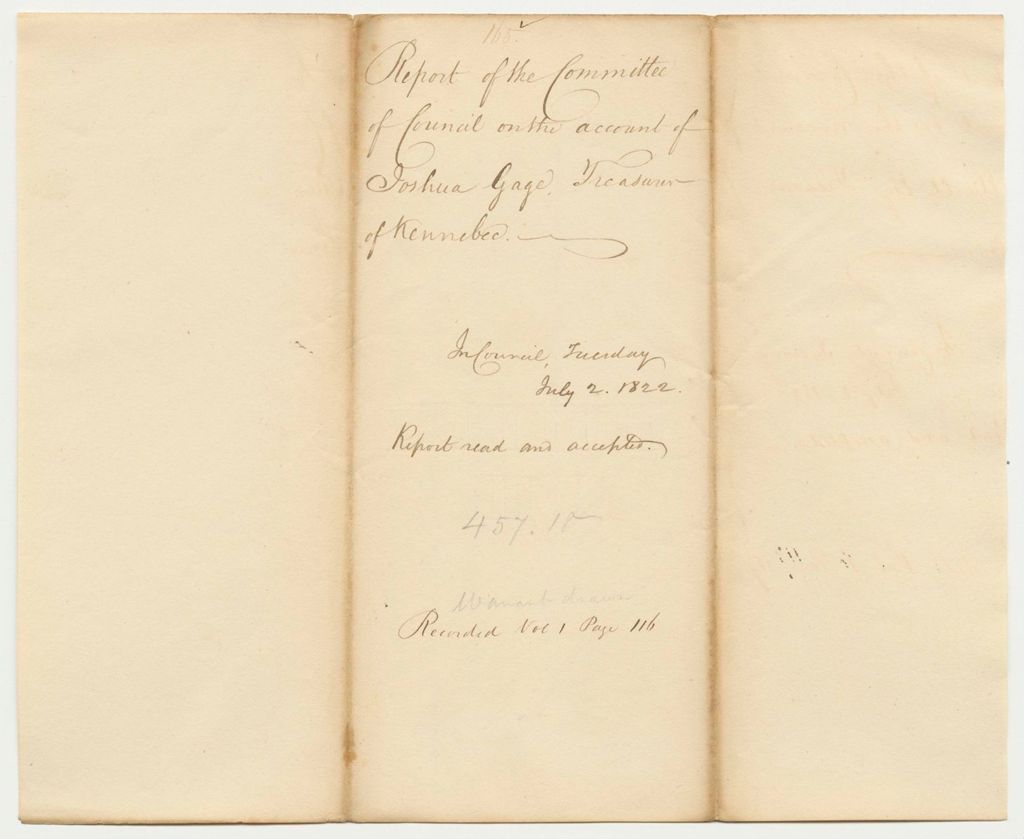 165.
Report of the Committee
of Council on the account of
Joshua Gage, Treasurer
of Kennebec.
In Council, Tuesday
July 2. 1822.
Report read and accepted.
457.18
Warrant drawn
Recorded Vol 1 Page 116